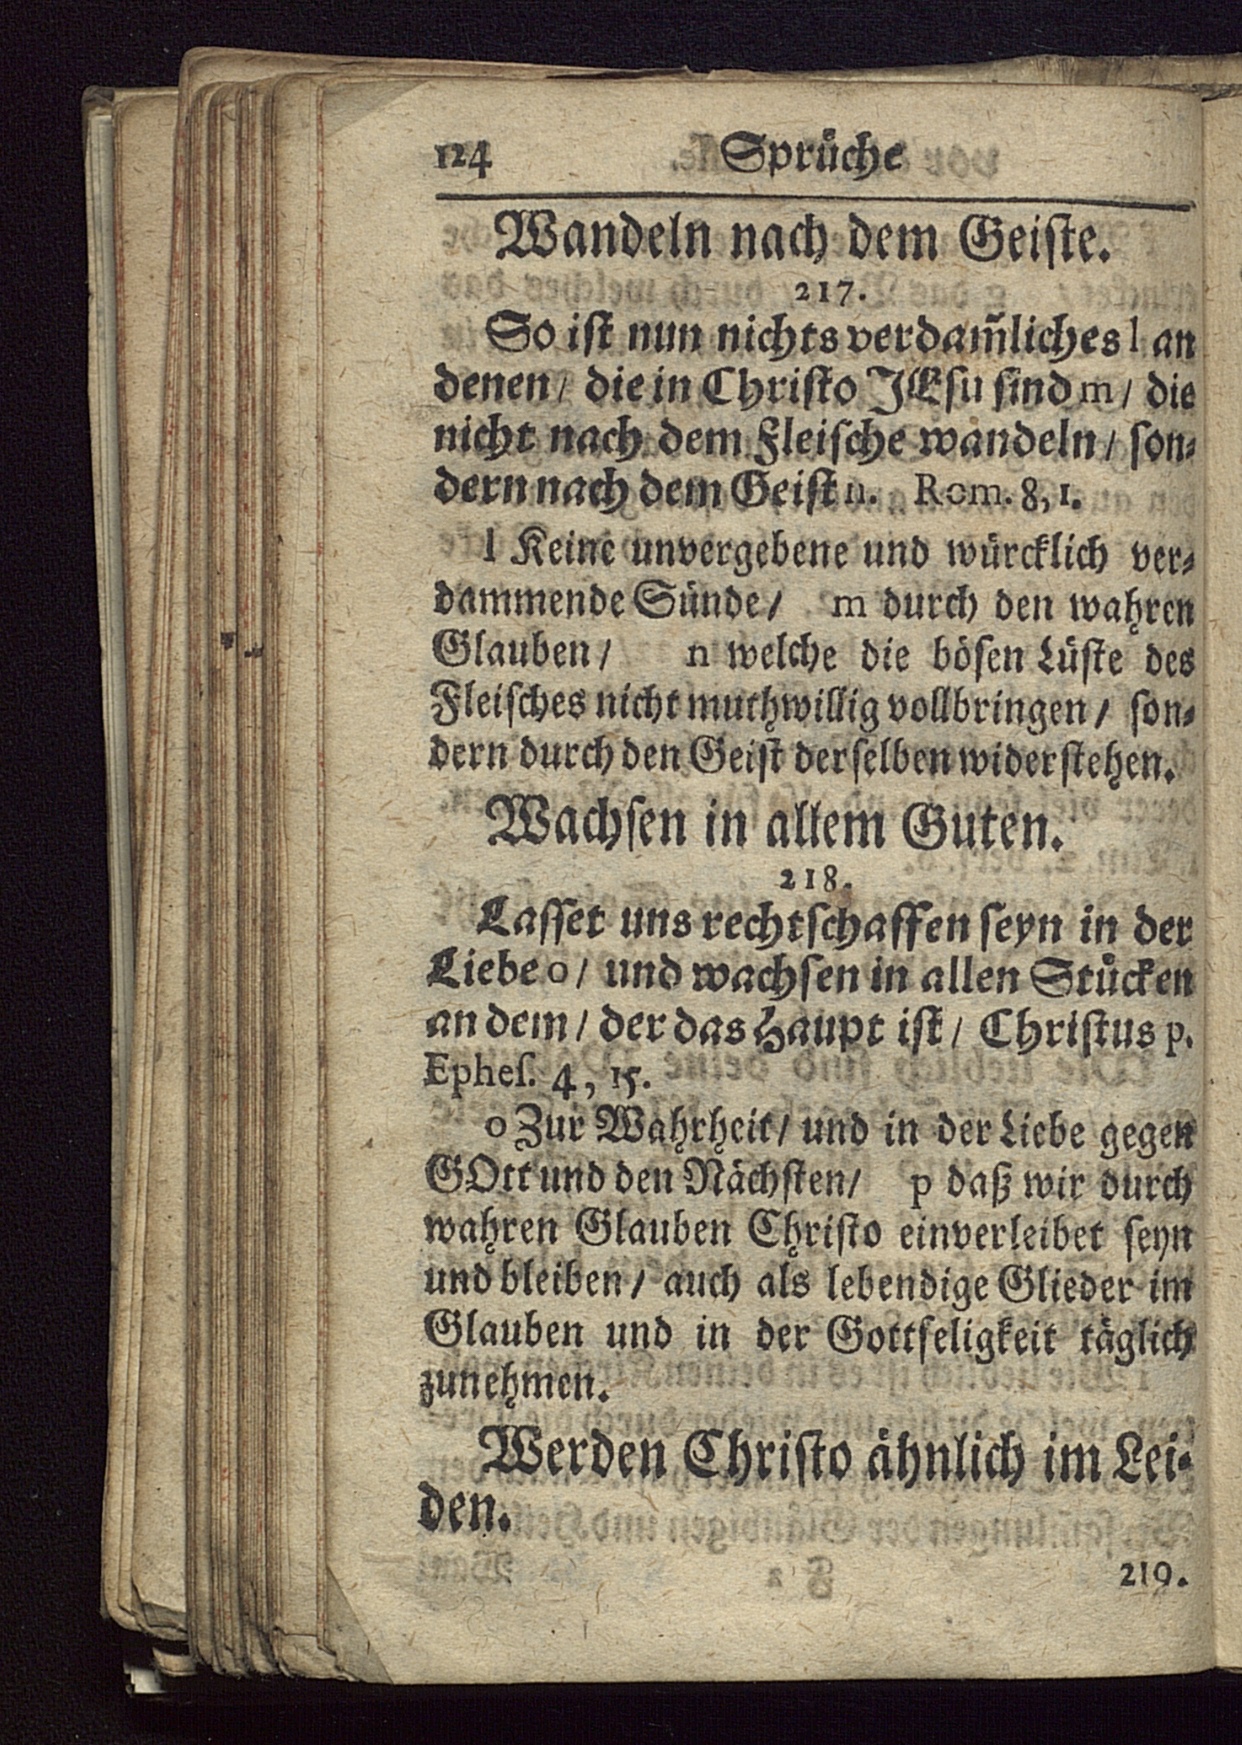 124 Sprüche
Wandeln nach dem Geiste.
217.
So ist nun nichts verdam̃liches l an
denen/ die in Christo JEsu sind m/ die
nicht nach dem Fleische wandeln/ son-
dern nach dem Geist n. Rom. 8, 1.
l Keine unvergebene und würcklich ver-
dammende Sünde/ m durch den wahren
Glauben/ n welche die bösen Lüste des
Fleisches nicht muthwillig vollbringen/ son-
dern durch den Geist derselben widerstehen.
Wachsen in allem Guten.
218.
Lasset uns rechtschaffen seyn in der
Liebe o/ und wachsen in allen Stücken
an dem/ der das Haupt ist/ Christus p.
Ephes. 4, 15.
o Zur Wahrheit/ und in der Liebe gegen
GOtt und den Nächsten/ p daß wir durch
wahren Glauben Christo einverleibet seyn
und bleiben/ auch als lebendige Glieder im
Glauben und in der Gottseligkeit täglich
zunehmen.
Werden Christo ähnlich im Lei-
den.
219.